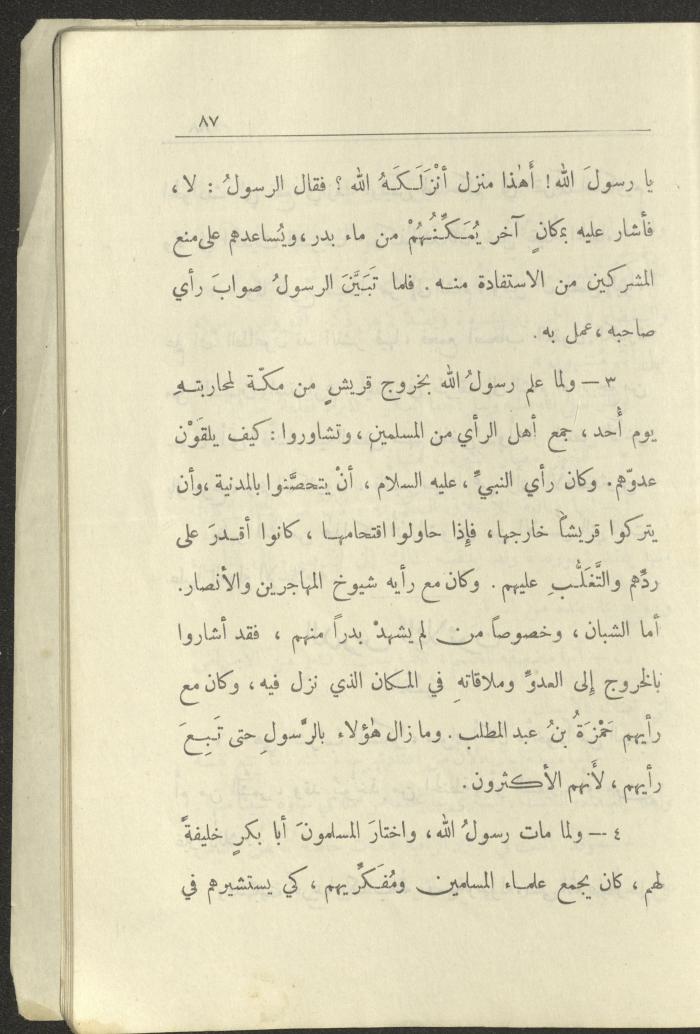 ٨٧
يا رسولَ الله! أَهٰذا منزل أَنْزَلَـكَـهُ الله ؟ فقال الرسولُ : لا ،
فأشار عليه بمكانٍ آخر يُمَـكِّـنُـهُمْ من ماء بدر ، ويُساعدهم على منع
المشركين من الاستفادة منـه . فلما تَبَيَّنَ الرسولُ صوابَ رأي
صاحبه ، عمل به .
٣ — ولما علم رسولُ الله بخروج قريشٍ من مكّة لمحاربتـهِ
يوم أُحد ، جمع أهل الرأي من المسلمين ، وتشاوروا : كيف يلقَوْن
عدوّهم . وكان رأي النبيِّ ، عليه السلام ، أنْ يتحصَّنوا بالمدنية ، وأن
يتركوا قريشاً خارجها ، فإِذا حاولوا اقتحامهـا ، كانوا أقـدرَ على
ردِّهم والتَّغَلُّبِ عليهم . وكان مع رأيه شيوخ المهاجرين والأنصار .
أما الشبان ، وخصوصاً من لم يشهدْ بدراً منهم ، فقد أشاروا
بالخروج إِلى العدوِّ وملاقاتهِ في المكان الذي نزل فيه ، وكان مع
رأيهم حَمْزَةُ بنُ عبد المطلب . وما زال هٰؤلاء بالرَّسولِ حتى تَـبِـعَ
رأيهم ، لأَنهم الأكثرون .
٤ — ولما مات رسولُ الله ، واختارَ المسلمونَ أبا بكرٍ خليفةً
لهم ، كان يجمع علمـاء المسلمين ومُفَـكِّريهم ، كي يستشيرهم في